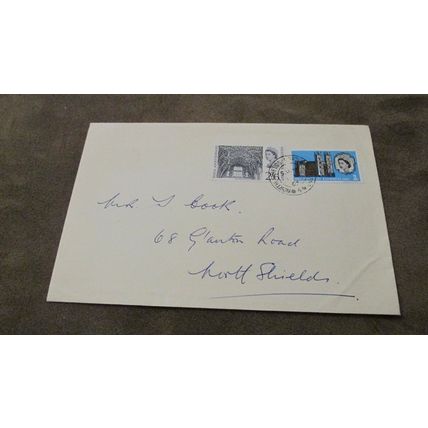 2/6
3d
Mrs T Cook.
68 Glanton Road
North Shields.